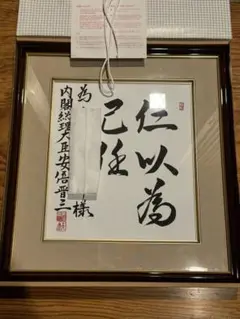 仁以為
己任
為 様
内閣総理大臣安倍晋三